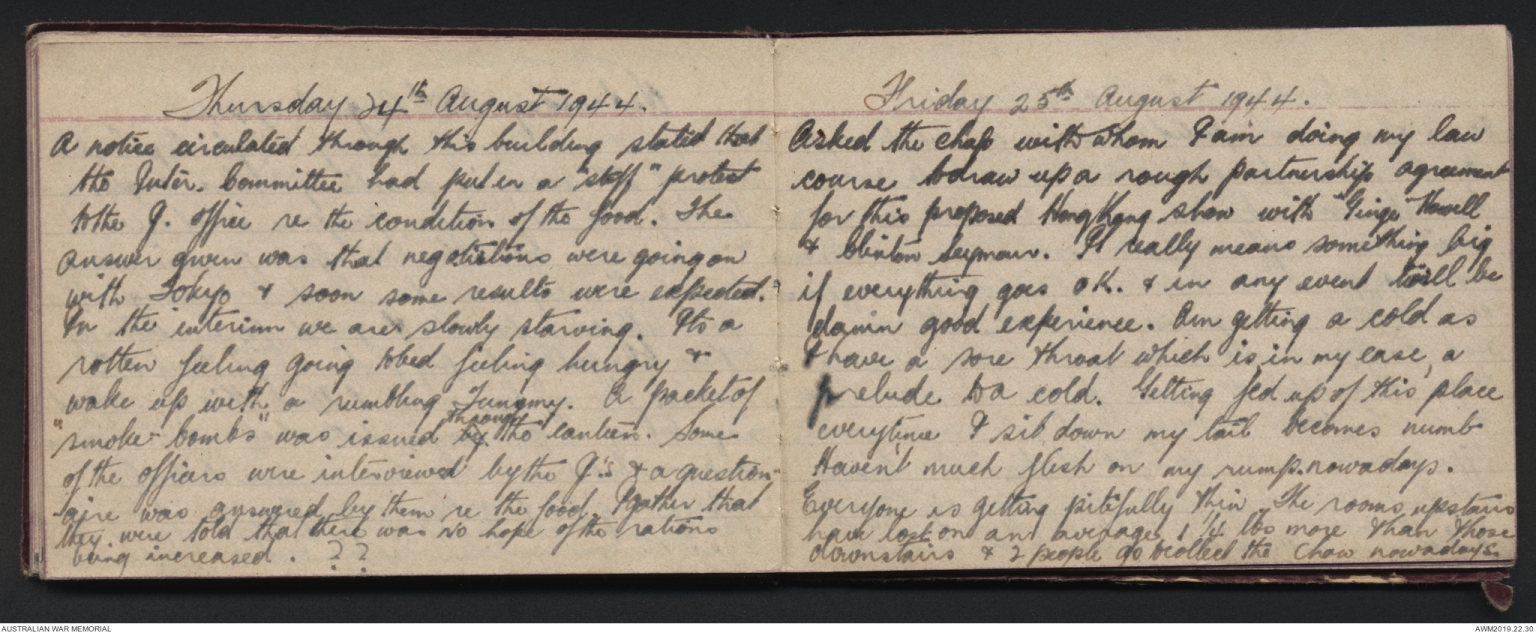 Thursday 24th August 1944.
A notice circulated through this building stated that
the Inter. Committee had put in a "stiff" protest
to the J. office re the condition of the food. The
answer given was that negotiations were going on
with Tokyo & soon some results were expected.
In the interium we are slowly starving. Its a
rotten feeling going to bed feeling hungry &
wake up with a rumbling Tummy. A packet of
"smoke-bombs" was issued by through the canteen. Some
of the officers were interviewed by the J's & a question-
aire was answered by them re the food. Gather that
they were told that there was no hope of the rations
being increased. ??
Friday 25th August 1944.
Asked the chap with whom I am doing my law
course to draw up a rough partnership agreement
for this proposed HongKong show with "Ginge" Howell
& Clinton Seymour. It really means something big
if everything goes OK. & in any event twill be
damn good experience. Am getting a cold as
I have a sore throat which is, in my case, a
prelude to a cold. Getting fed up of this place
everytime I sit down my tail becomes numb
Havent much flesh on my rump. nowadays.
Everyone is getting pitifully thin. The rooms upstairs
have lost on an average 1 1/4 lbs more than those
downstairs & 2 people go to collect the chow nowadays.
AUSTRALIAN WAR MEMORIAL
AWM2019.22.30